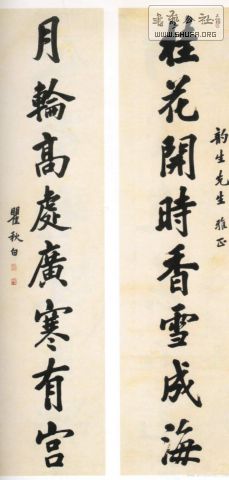 韵生先生 雅正
桂花開時香雪成海
月輪高處廣寒有宮
瞿秋白
WWW.SHUFA.ORG